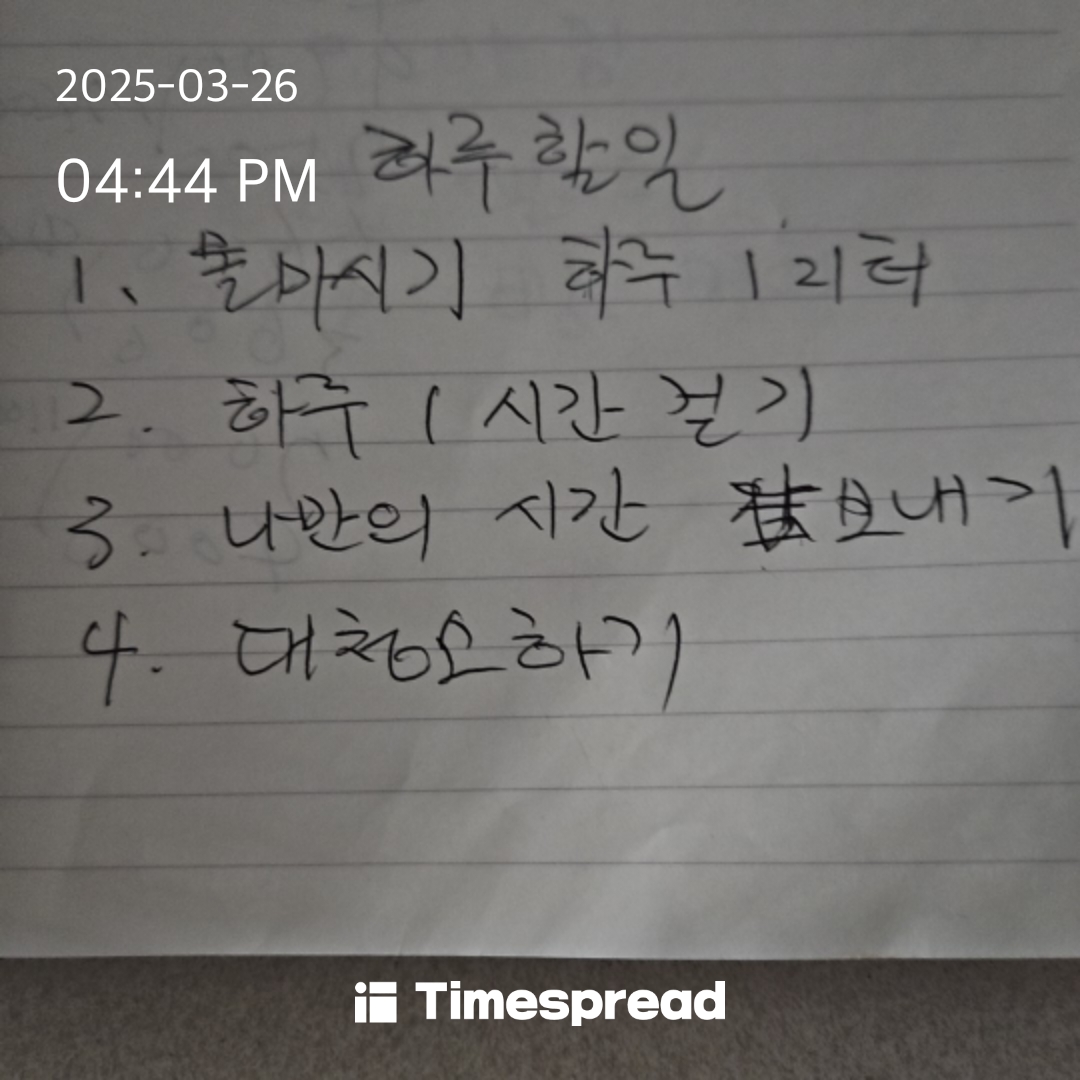 2025-03-26
04:44 PM
하루 할일
1. 물마시기 하루 1리터
2. 하루 1시간 걷기
3. 나만의 시간 보내기
4. 대청소하기
Timespread